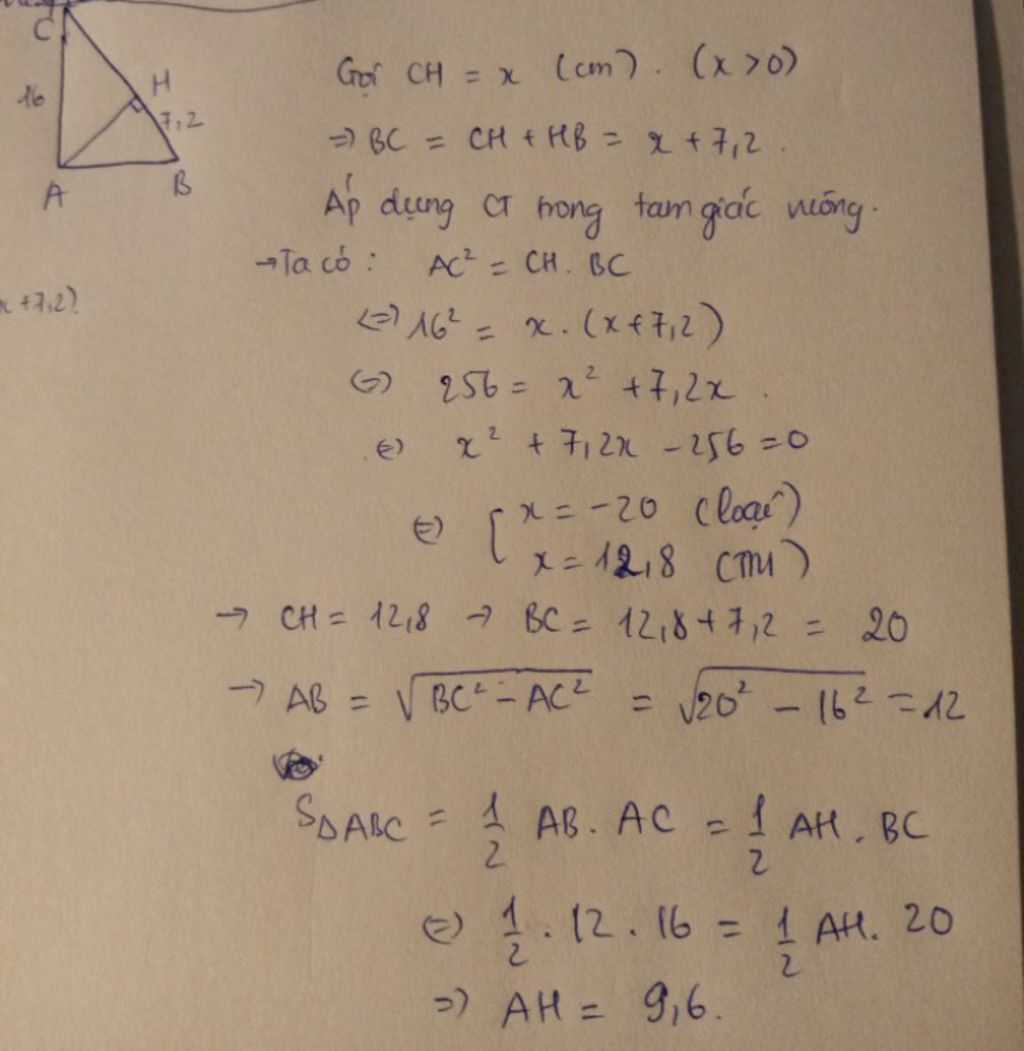 C
16
H
7,2
A
B
x+7,2)
Gọi CH = x (cm). (x>0)
⇒ BC = CH + HB = x + 7,2.
Áp dụng CT trong tam giác vuông.
→ Ta có: AC² = CH. BC
⇔ 16² = x. (x+7,2)
⇔ 256 = x² + 7,2x.
⇔ x² + 7,2x - 256 = 0
⇔ [ x = -20 (loại)
x = 12,8 (TM)
→ CH = 12,8 → BC = 12,8 + 7,2 = 20
→ AB = √(BC² - AC²) = √(20² - 16²) = 12
SΔABC = 1/2 AB. AC = 1/2 AH. BC
⇔ 1/2 . 12 . 16 = 1/2 AH. 20
⇒ AH = 9,6.